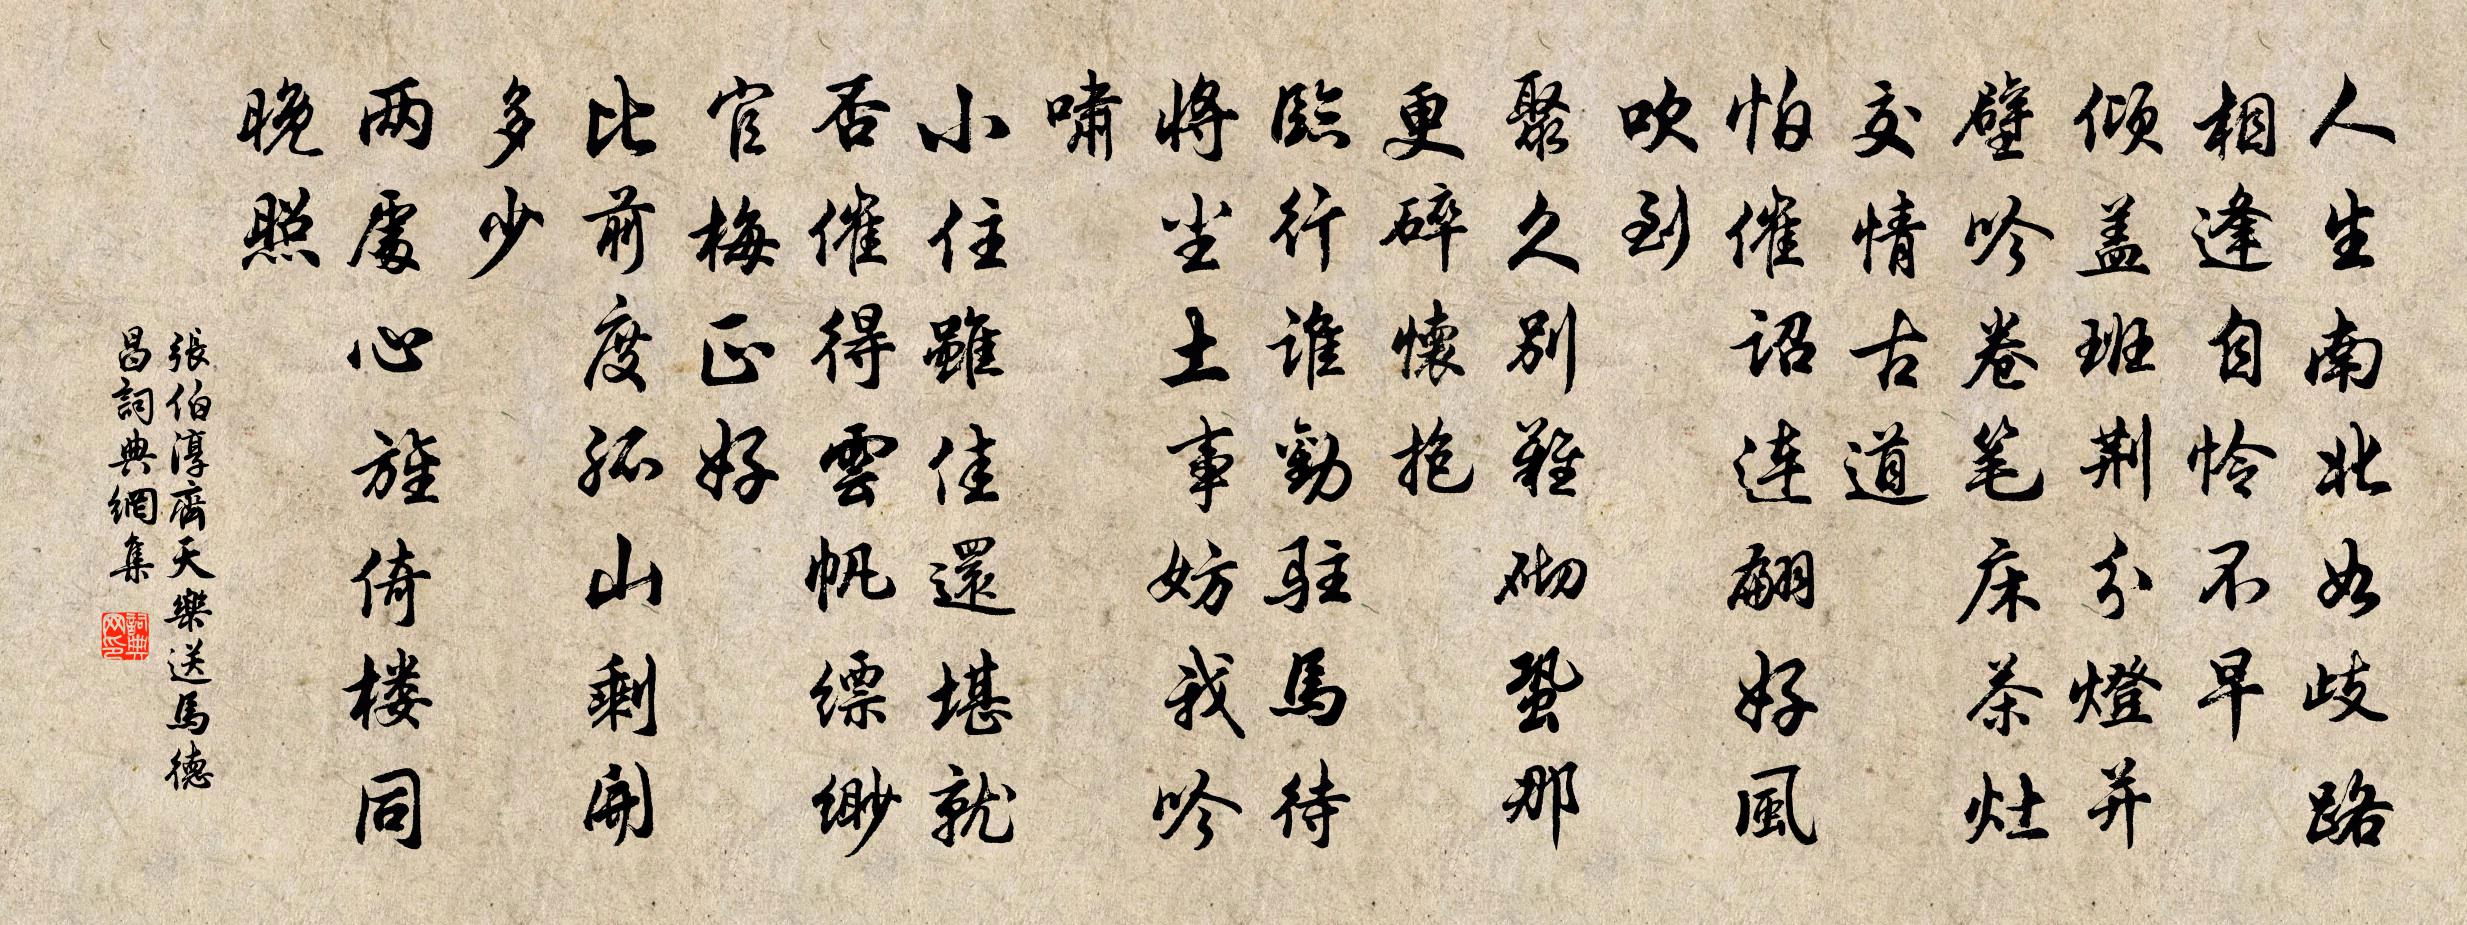 人生南北如歧路
相逢自怜不早
倾盖班荆分燈并
壁吟卷笔床茶灶
交情古道
怕催诏连翩好風
吹到
聚久别難砌蛩那
更碎懷抱
臨行誰勸駐馬待
將尘土事妨我吟
嘯
小住雖佳還堪就
否催得雲帆缥缈
官梅正好
比前度孤山剩開
多少
两處心旌倚楼同
晚照
張伯淳齊天樂送馬德
昌詞典網集
詞典网印